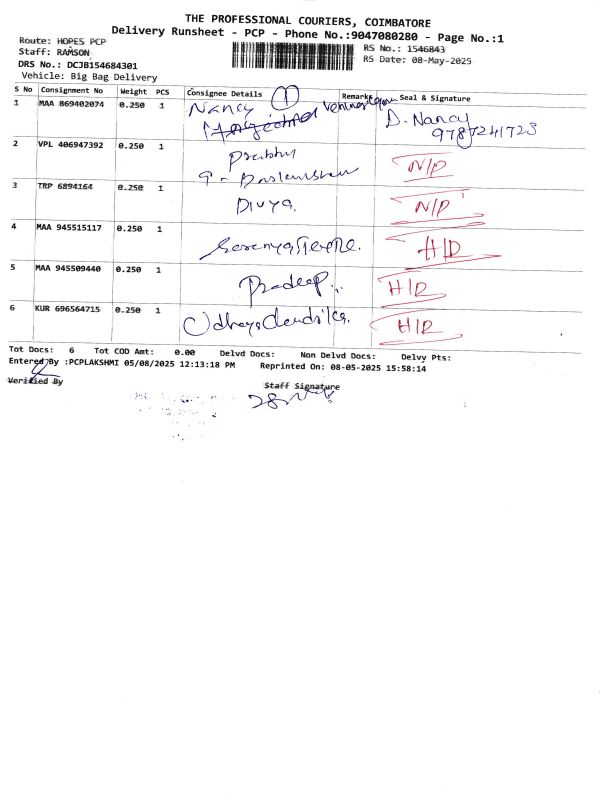 THE PROFESSIONAL COURIERS, COIMBATORE
Delivery Runsheet - PCP - Phone No.:9047080280 - Page No.:1
Route: HOPES PCP
Staff: RAMSON
RS No.: 1546843
RS Date: 08-May-2025
DRS No.: DCJB154684301
Vehicle: Big Bag Delivery
S No Consignment No Weight PCS Consignee Details 1 Remarks Seal & Signature
1 MAA 869402074 0.250 1 Nancy D. Nancy
9787241723
2 VPL 406947392 0.250 1 Prabhu N/P
3 TRP 6894164 0.250 1 Divya. N/P
4 MAA 945515117 0.250 1 H/D
5 MAA 945509440 0.250 1 Pradeep.. H/D
6 KUR 696564715 0.250 1 H/D
Tot Docs: 6 Tot COD Amt: 0.00 Delvd Docs: Non Delvd Docs: Delvy Pts:
Entered By :PCPLAKSHMI 05/08/2025 12:13:18 PM Reprinted On: 08-05-2025 15:58:14
Verified By
Staff Signature